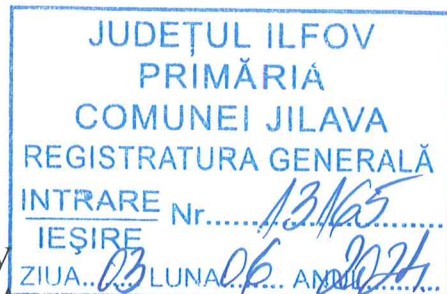 JUDEȚUL ILFOV
PRIMĂRIA
COMUNEI JILAVA
REGISTRATURA GENERALĂ
INTRARE
IEȘIRE
Nr. 13165
ZIUA 03 LUNA 06 ANUL 2024